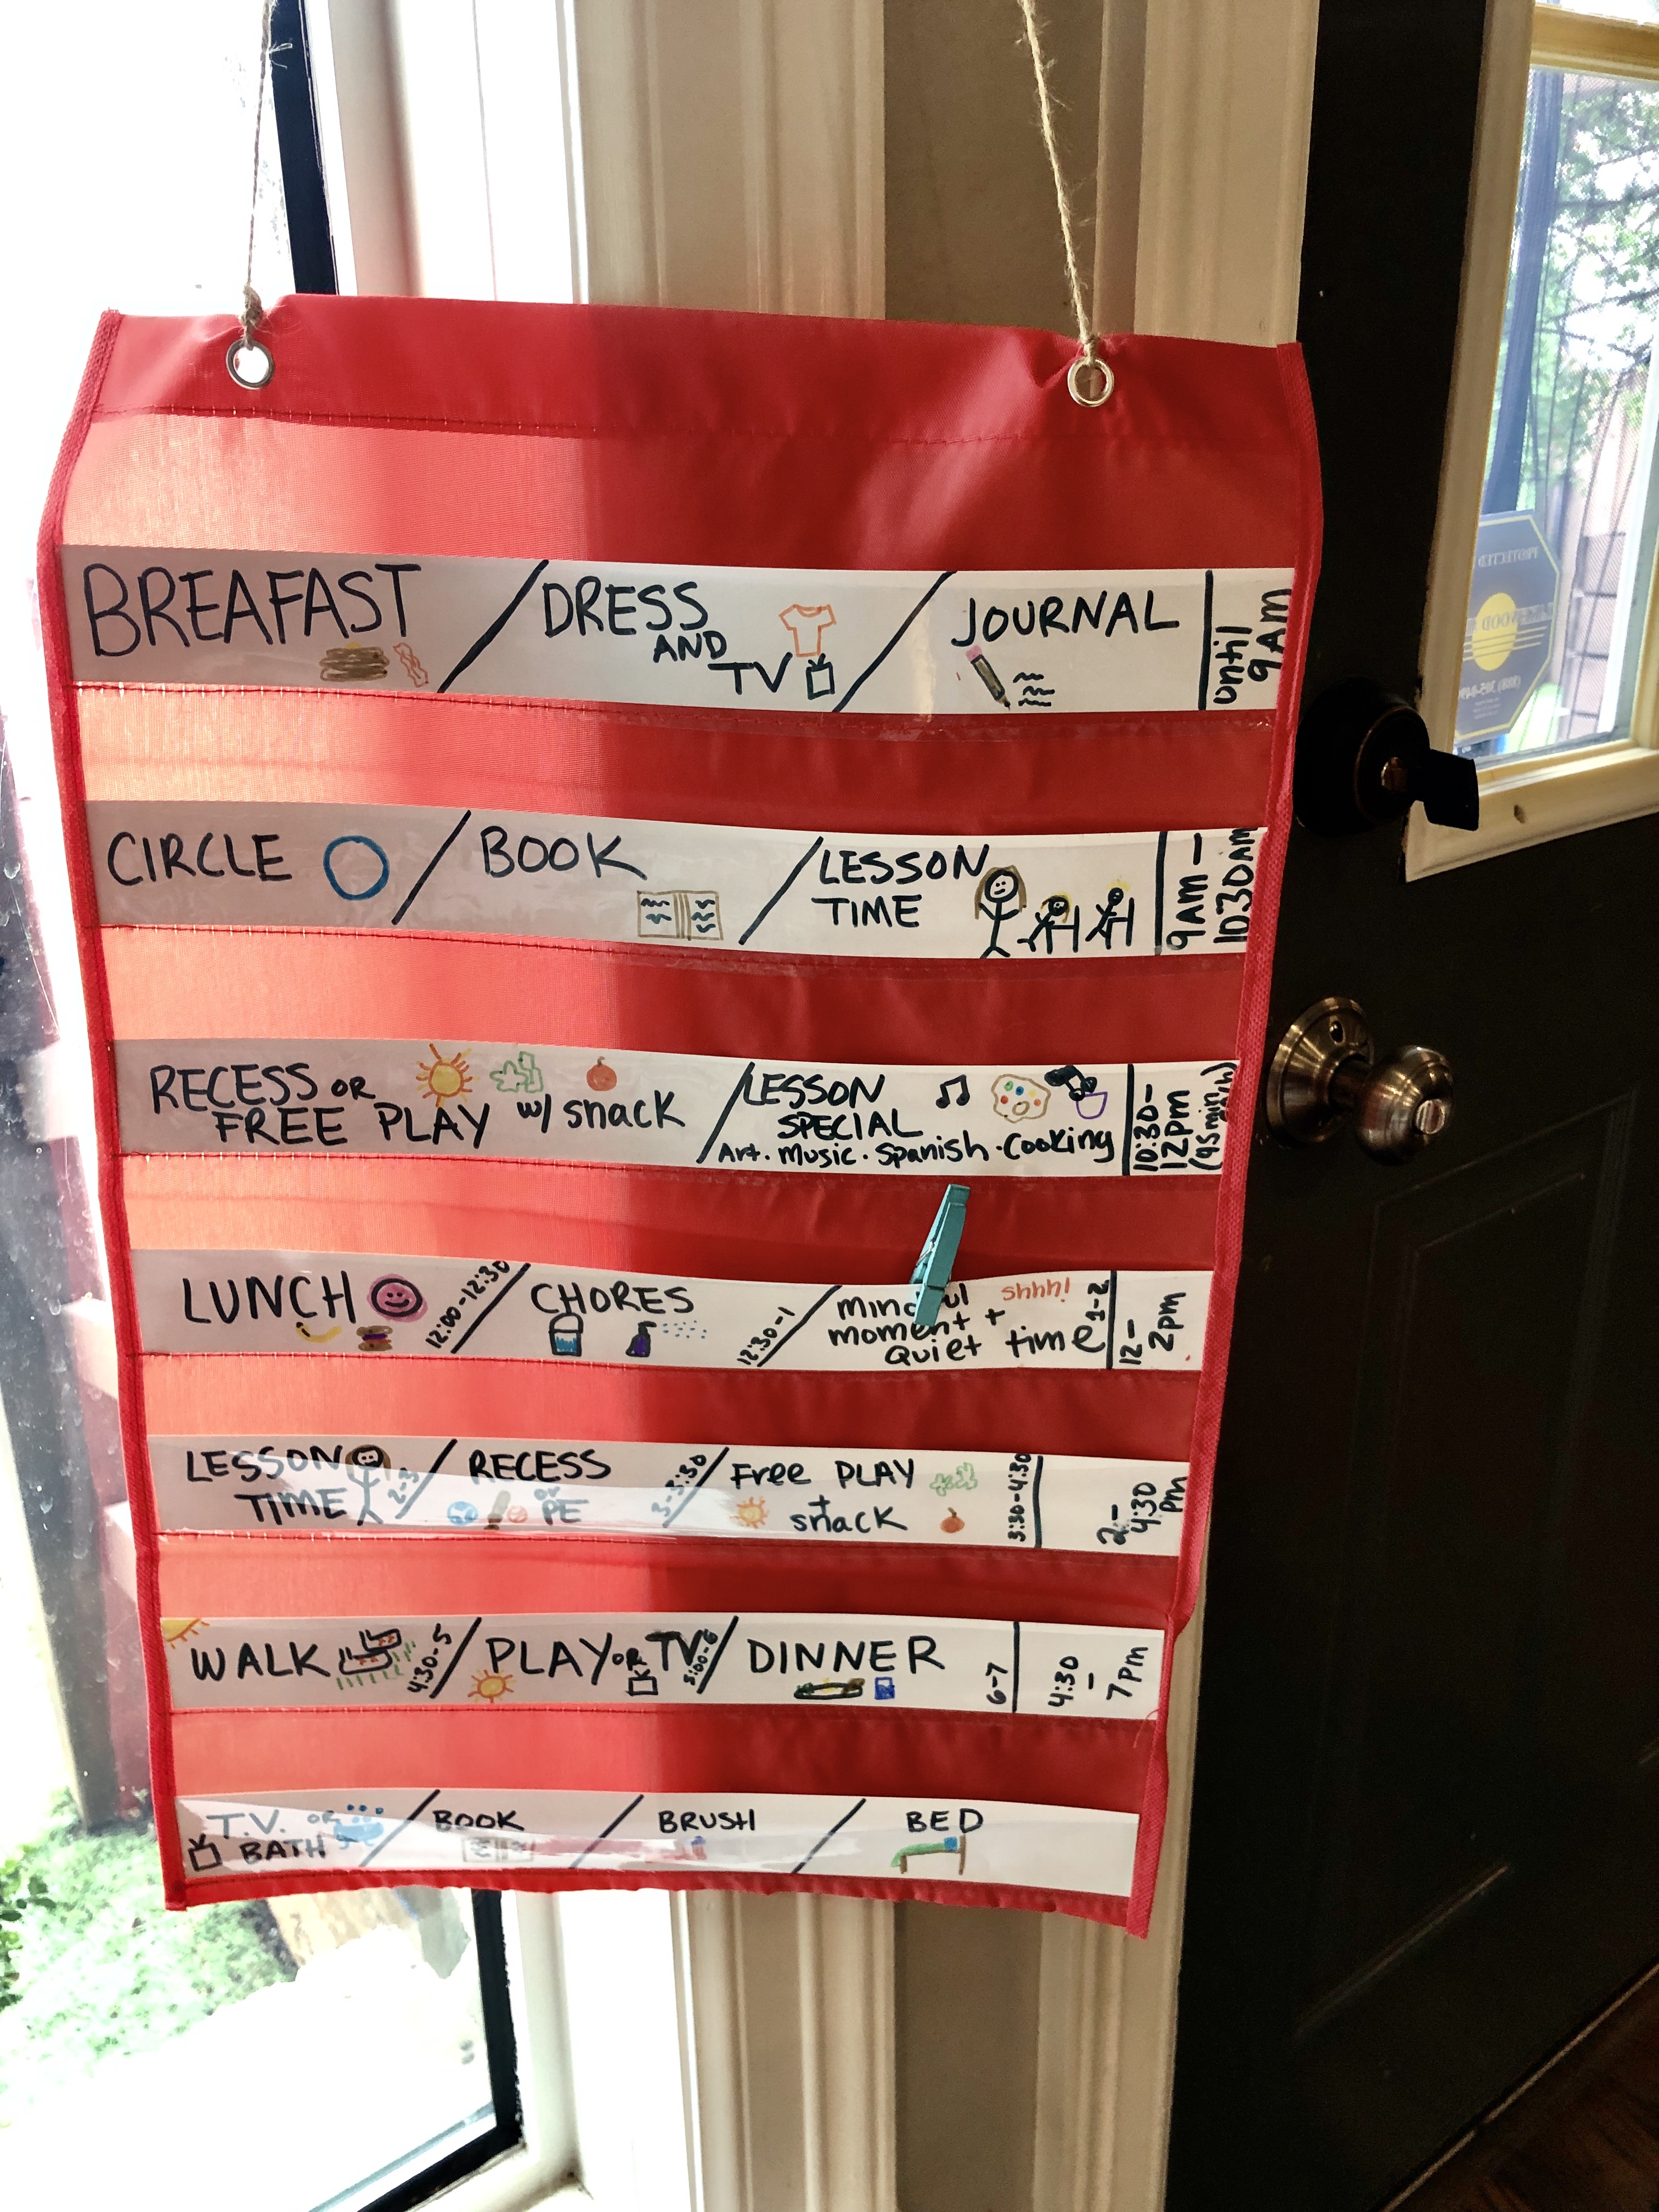 BREAFAST / DRESS AND TV / JOURNAL | until 9AM
CIRCLE / BOOK / LESSON TIME | 9AM - 10:30AM
RECESS OR FREE PLAY w/ snack / LESSON SPECIAL Art. Music. Spanish. Cooking | 10:30- 12pm (45 min each)
LUNCH 12:00-12:30 / CHORES 12:30-1 / mindful moment + Quiet time shhhh! 1-2 | 12- 2pm
LESSON TIME 2-3 / RECESS or PE 3-3:30 / Free PLAY + snack 3:30-4:30 | 2- 4:30 pm
WALK 4:30-5 / PLAY OR TV 5:00-6 / DINNER 6-7 | 4:30 - 7pm
T.V. OR BATH / BOOK / BRUSH / BED
PROTECTED